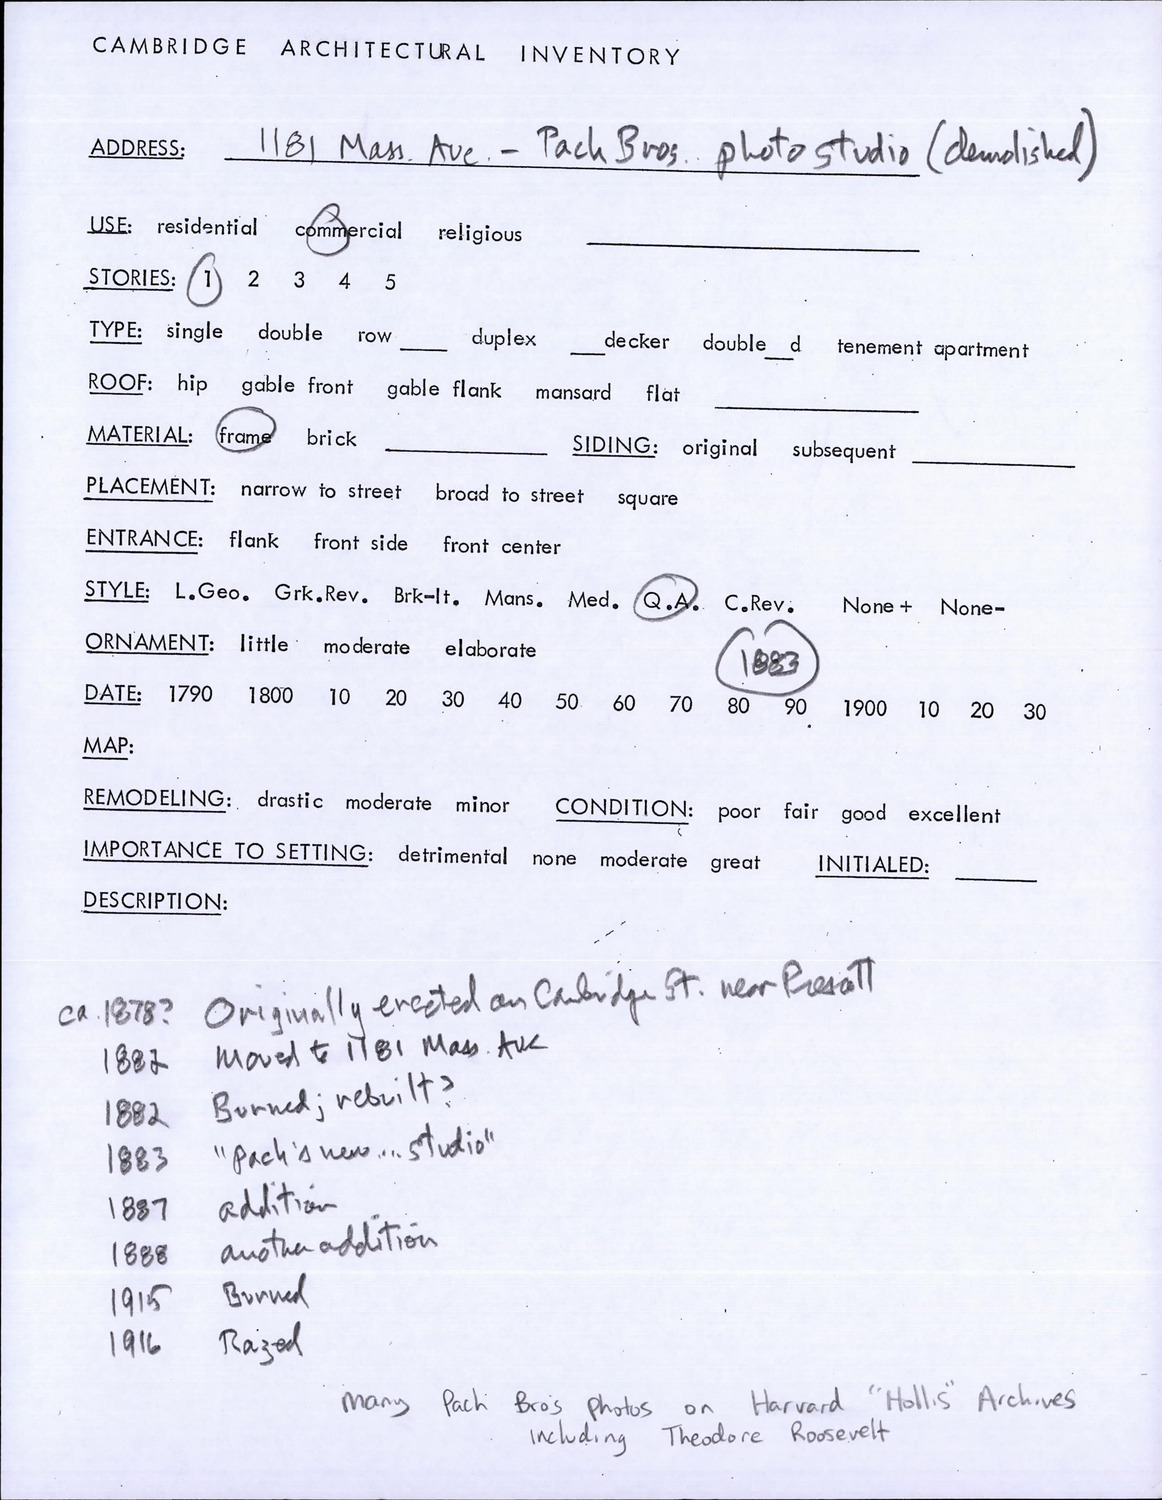 CAMBRIDGE ARCHITECTURAL INVENTORY
ADDRESS: 1181 Mass. Ave. - Pach Bros. photo studio (demolished)
USE: residential commercial religious
STORIES: 1 2 3 4 5
TYPE: single double row ___ duplex ___decker double__d tenement apartment
ROOF: hip gable front gable flank mansard flat
MATERIAL: frame brick SIDING: original subsequent
PLACEMENT: narrow to street broad to street square
ENTRANCE: flank front side front center
STYLE: L.Geo. Grk.Rev. Brk-It. Mans. Med. Q.A. C.Rev. None+ None-
ORNAMENT: little moderate elaborate
1883
DATE: 1790 1800 10 20 30 40 50 60 70 80 90 1900 10 20 30
MAP:
REMODELING: drastic moderate minor CONDITION: poor fair good excellent
IMPORTANCE TO SETTING: detrimental none moderate great INITIALED:
DESCRIPTION:
ca. 1878? Originally erected on Cambridge St. near Prescott
1882 Moved to 1181 Mass. Ave
1882 Burned; rebuilt?
1883 "Pach's new...studio"
1887 addition
1888 another addition
1915 Burned
1916 Razed
Many Pach Bros photos on Harvard "Hollis" Archives
including Theodore Roosevelt